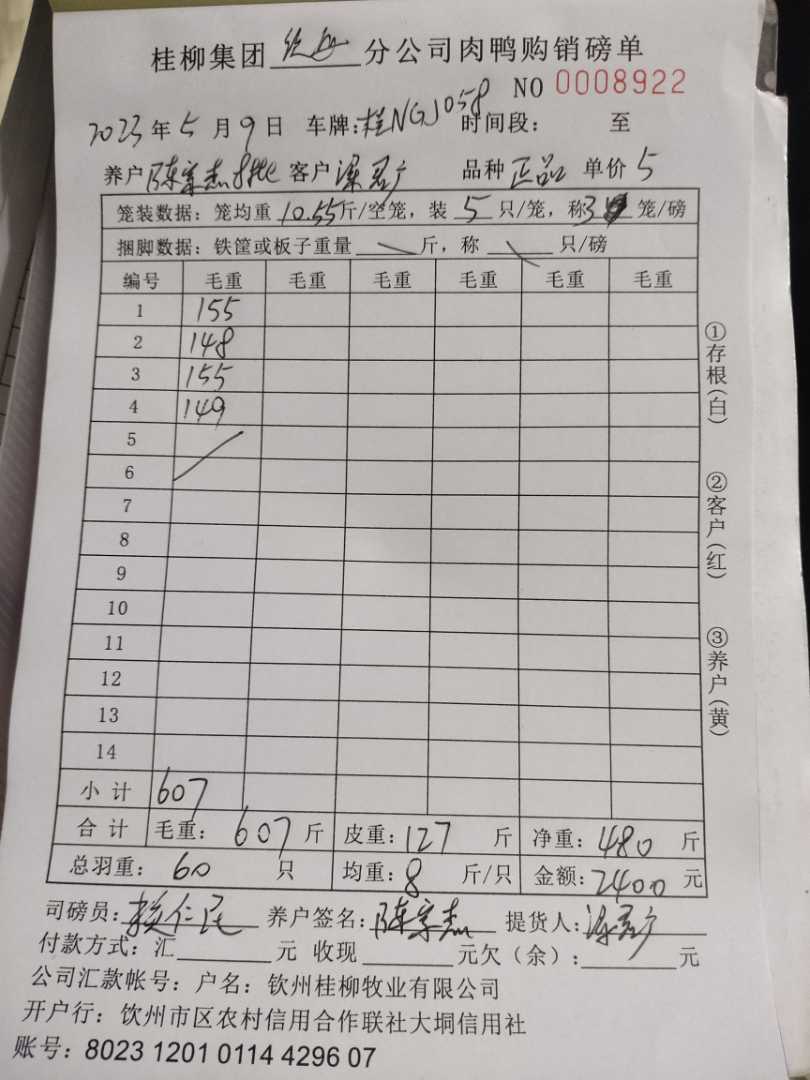 桂柳集团 分公司肉鸭购销磅单
NO 0008922
2023年5月9日 车牌:桂NGJ058 时间段: 至
养户 陈宗杰8批 客户 梁 广 品种 正品 单价 5
笼装数据:笼均重 10.55 斤/空笼,装 5 只/笼,称 3 笼/磅
捆脚数据:铁筐或板子重量 斤,称 只/磅
编号 毛重 毛重 毛重 毛重 毛重 毛重
1 155
2 148
3 155
4 149
5
6
7
8
9
10
11
12
13
14
小计 607
合计 毛重: 607 斤 皮重: 127 斤 净重: 480 斤
总羽重: 60 只 均重: 8 斤/只 金额: 2400 元
司磅员: 仁民 养户签名: 陈宗杰 提货人: 梁 广
付款方式:汇 元 收现 元欠(余): 元
公司汇款帐号:户名:钦州桂柳牧业有限公司
开户行:钦州市区农村信用合作联社大垌信用社
账号:8023 1201 0114 4296 07
①存根(白)
②客户(红)
③养户(黄)